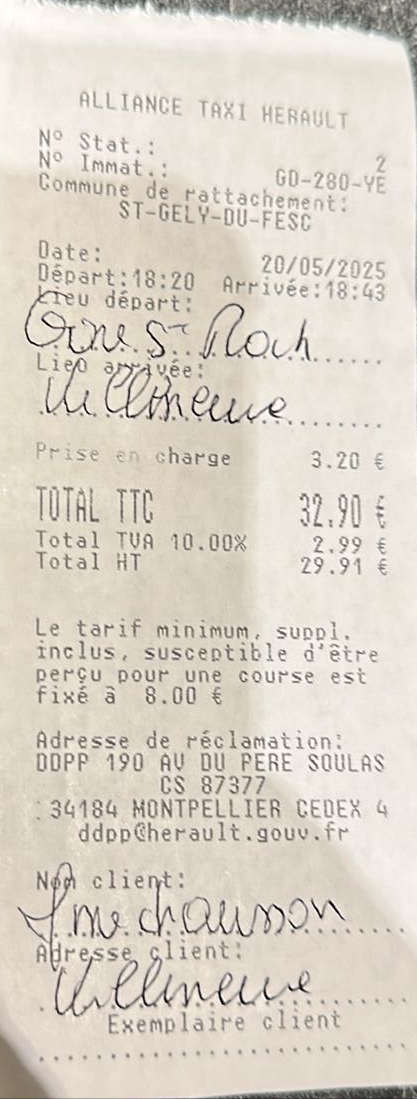 ALLIANCE TAXI HERAULT
N° Stat.: 2
N° Immat.: GD-280-YE
Commune de rattachement:
ST-GELY-DU-FESC
Date: 20/05/2025
Départ:18:20 Arrivée:18:43
Lieu départ:
Gare St Roch
Lieu arrivée:
Villeneuve
Prise en charge 3.20 €
TOTAL TTC 32.90 €
Total TVA 10.00% 2.99 €
Total HT 29.91 €
Le tarif minimum, suppl.
inclus, susceptible d'être
perçu pour une course est
fixé à 8.00 €
Adresse de réclamation:
DDPP 190 AV DU PERE SOULAS
CS 87377
34184 MONTPELLIER CEDEX 4
ddpp@herault.gouv.fr
Nom client:
Mme chausson
Adresse client:
Villeneuve
Exemplaire client